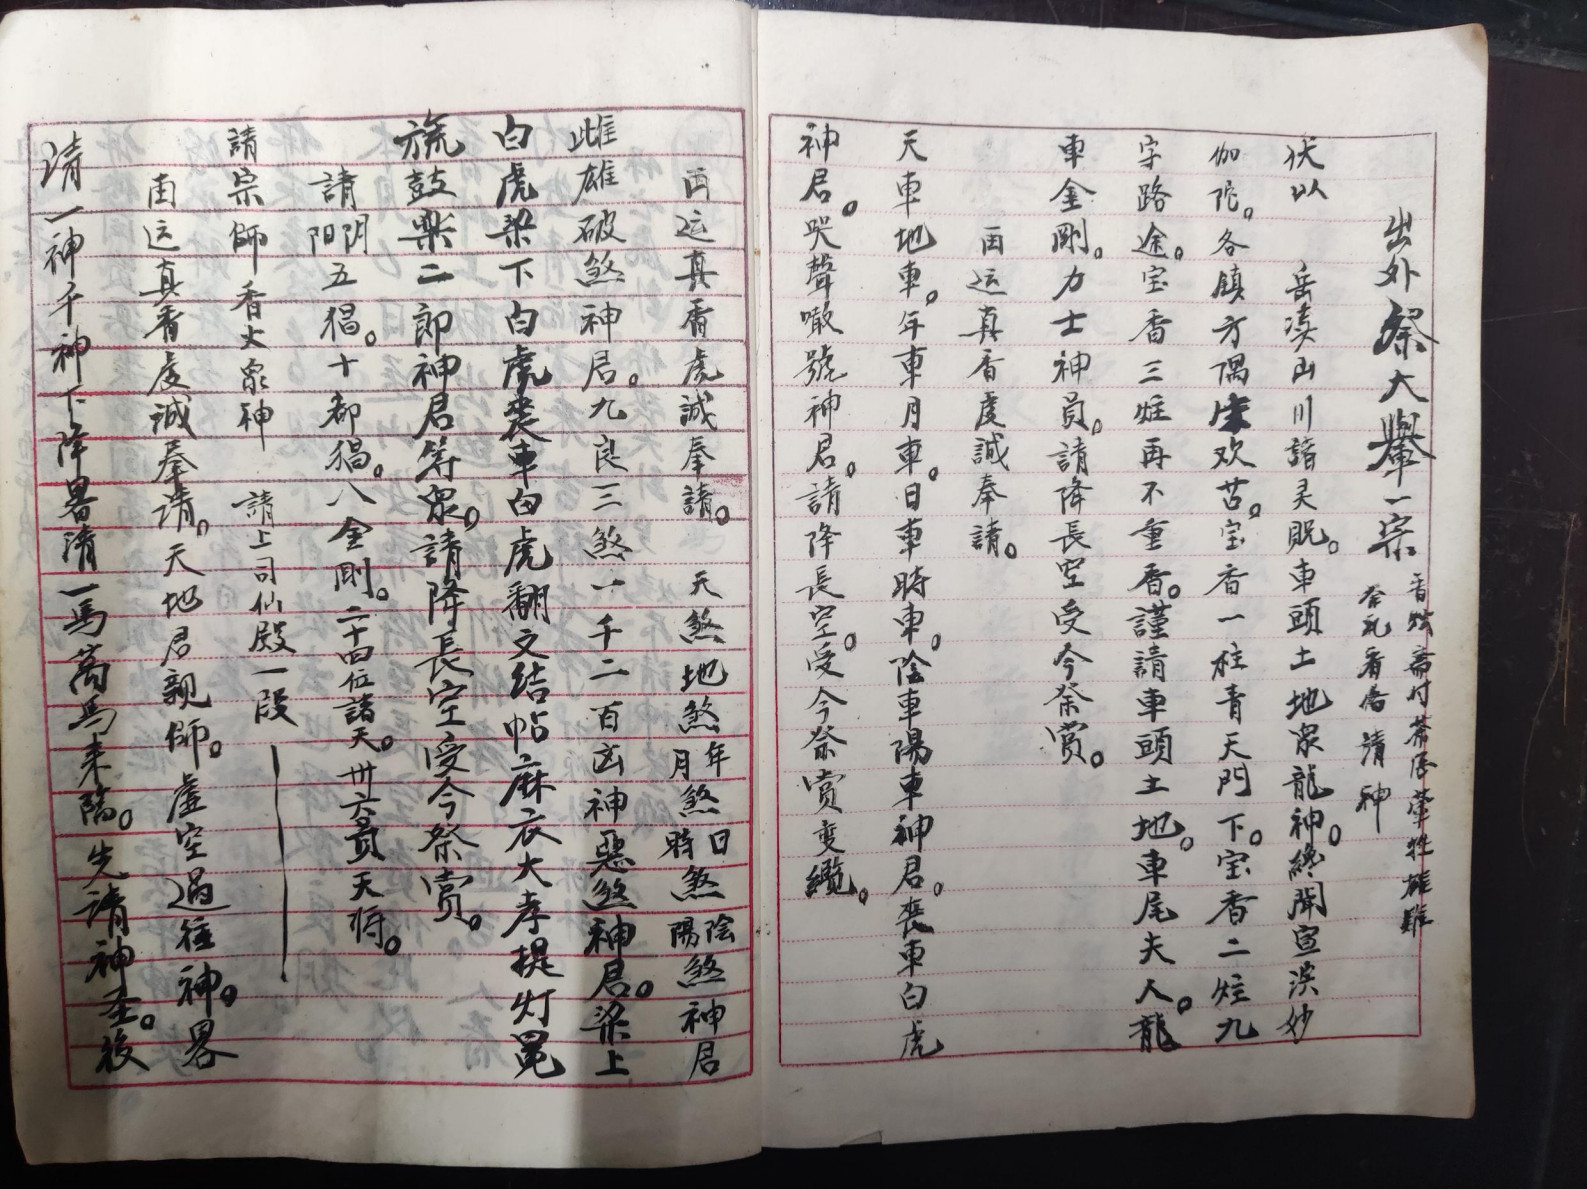 出外祭大轝一宗
奈礼香斋請神
伏以 岳瀆山川諸灵贶。車頭土地眾龍神。終聞宣演妙
伽陀。各鎮方隅宋欢苦。宝香一柱青天門下。宝香二炷九
字路途。宝香三炷再不重香。謹請車頭土地。車尾夫人。龍
車金剛。力士神員。請降長空受今祭赏。
再运真香虔誠奉請。
天車地車。年車月車。日車時車。陰車陽車神君。丧車白虎
神君。哭聲噉號神君。請降長空。受今祭赏变纜。
再运真香虔誠奉請。 天煞地煞年煞月煞日煞時煞陰陽煞神君
雌雄破煞神君。九良三煞一千二百凶神惡煞神君。梁上
白虎梁下白虎丧車白虎翻文结帖麻衣大孝提灯冕
旒鼓樂二郎神君等眾。請降長空受今祭赏。
請陰陽五猖。十都猖。八金剛。二十四位諸天。卅六員天将。
請宗師香火眾神 請上司仙殿一段
再运真香虔誠奉请。天地君親師。虚空過往神。畧
请一神千神下降畧请一馬萬馬来臨。先請神圣後